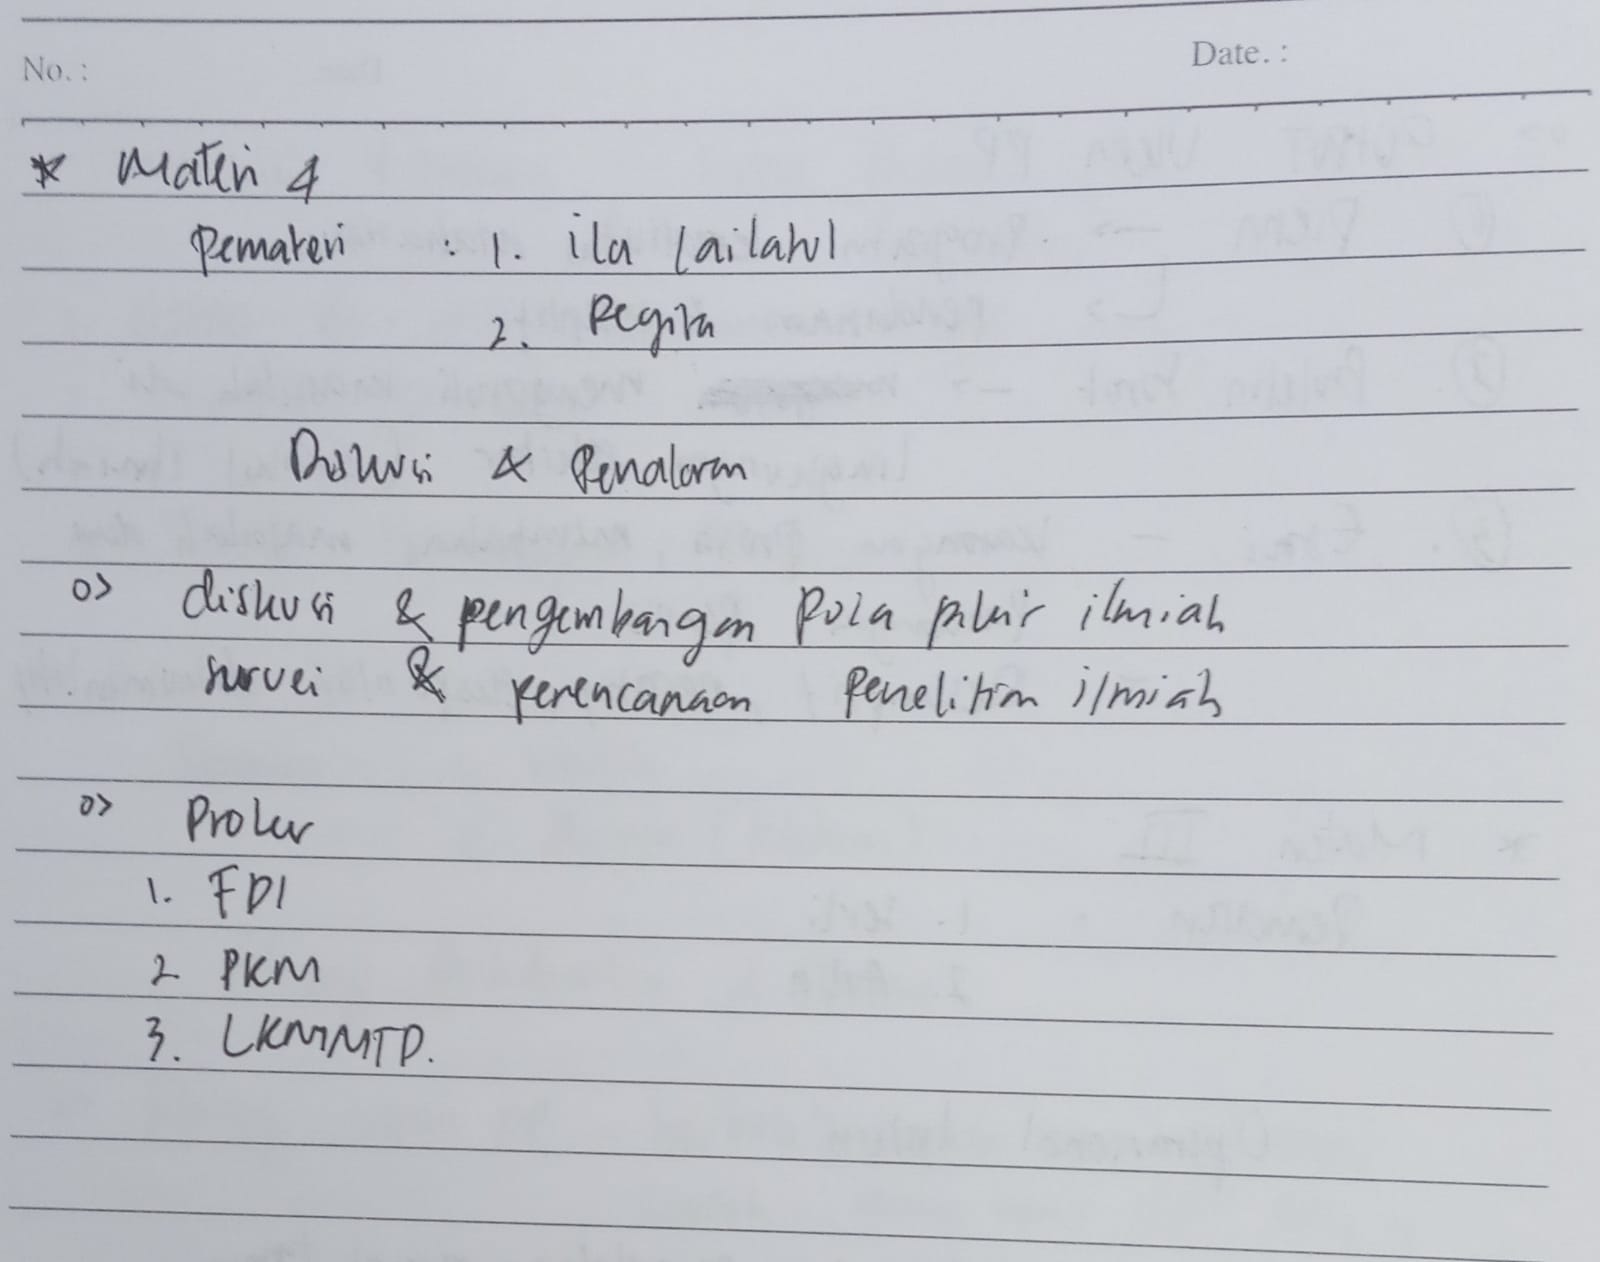 No. :
Date. :
* Materi 4
Pemateri : 1. ila lailatul
2. Regita
Diskusi & Penalaran
=> diskusi & pengembangan pola pikir ilmiah
survei & perencanaan Penelitian ilmiah
=> Proker
1. FDI
2 PKM
3. LKMMTD.